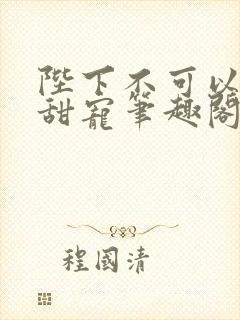 陛下不可以
甜寵筆趣閣
程國清